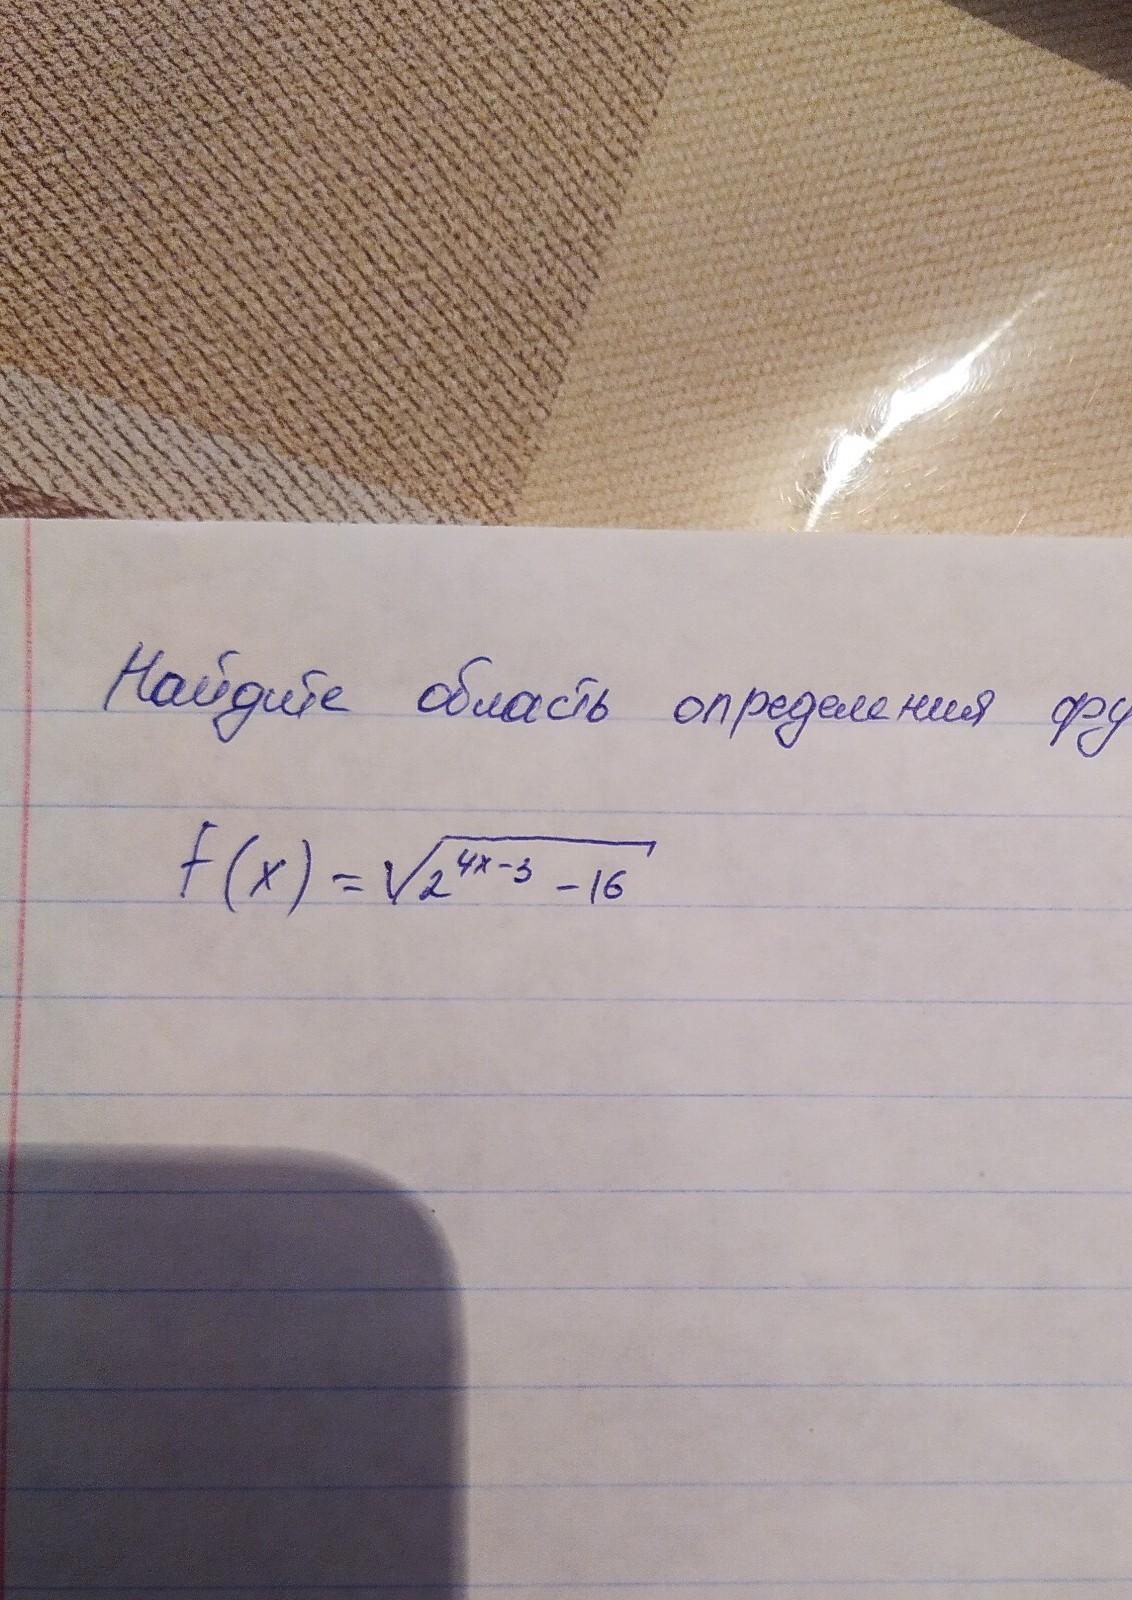 Найдите область определения фу
f(x) = √(2^(4x-3) - 16)